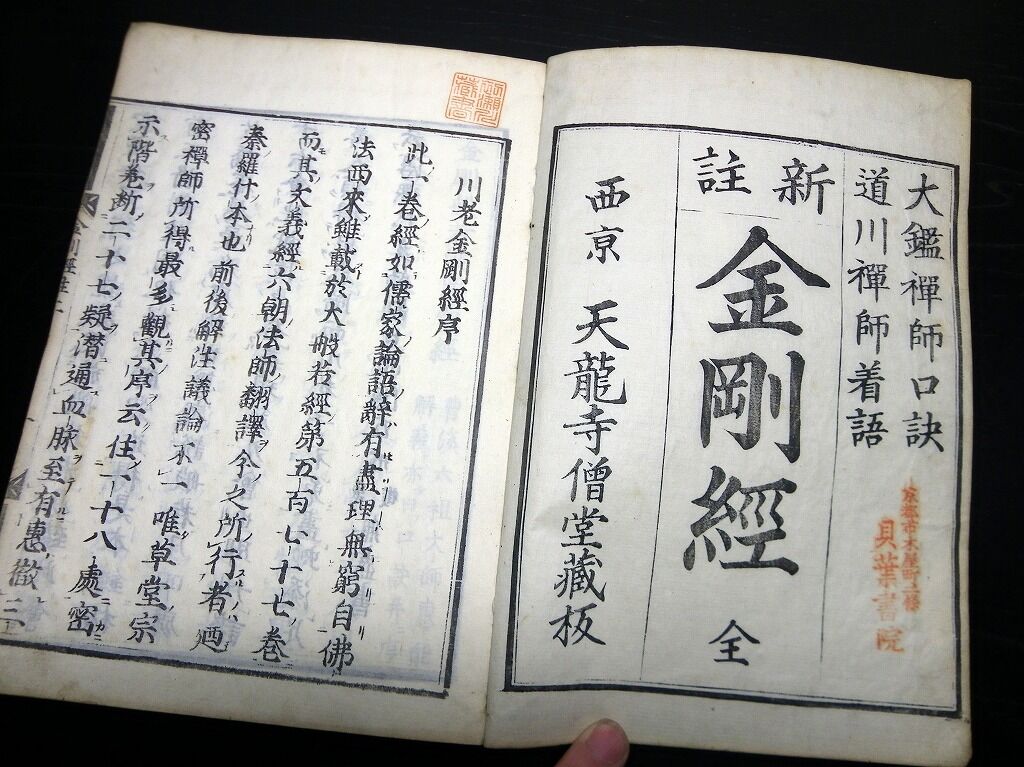 大鑑禪師口訣
道川禪師着語
新註
金剛經 全
西京 天龍寺僧堂藏板
京都市木屋町二條
貝葉書院
川老金剛經序
此一卷經如儒家論語辭有盡理無窮自佛
法西來雖載於大般若經第五百七十七卷
而其大義經六朝法師翻譯今之所行者廼
秦羅什本也前後解註議論不一唯草堂宗
密禪師所得最多觀其序云住一十八處密
示階卷斷二十七疑潛通血脉至有惠徹三